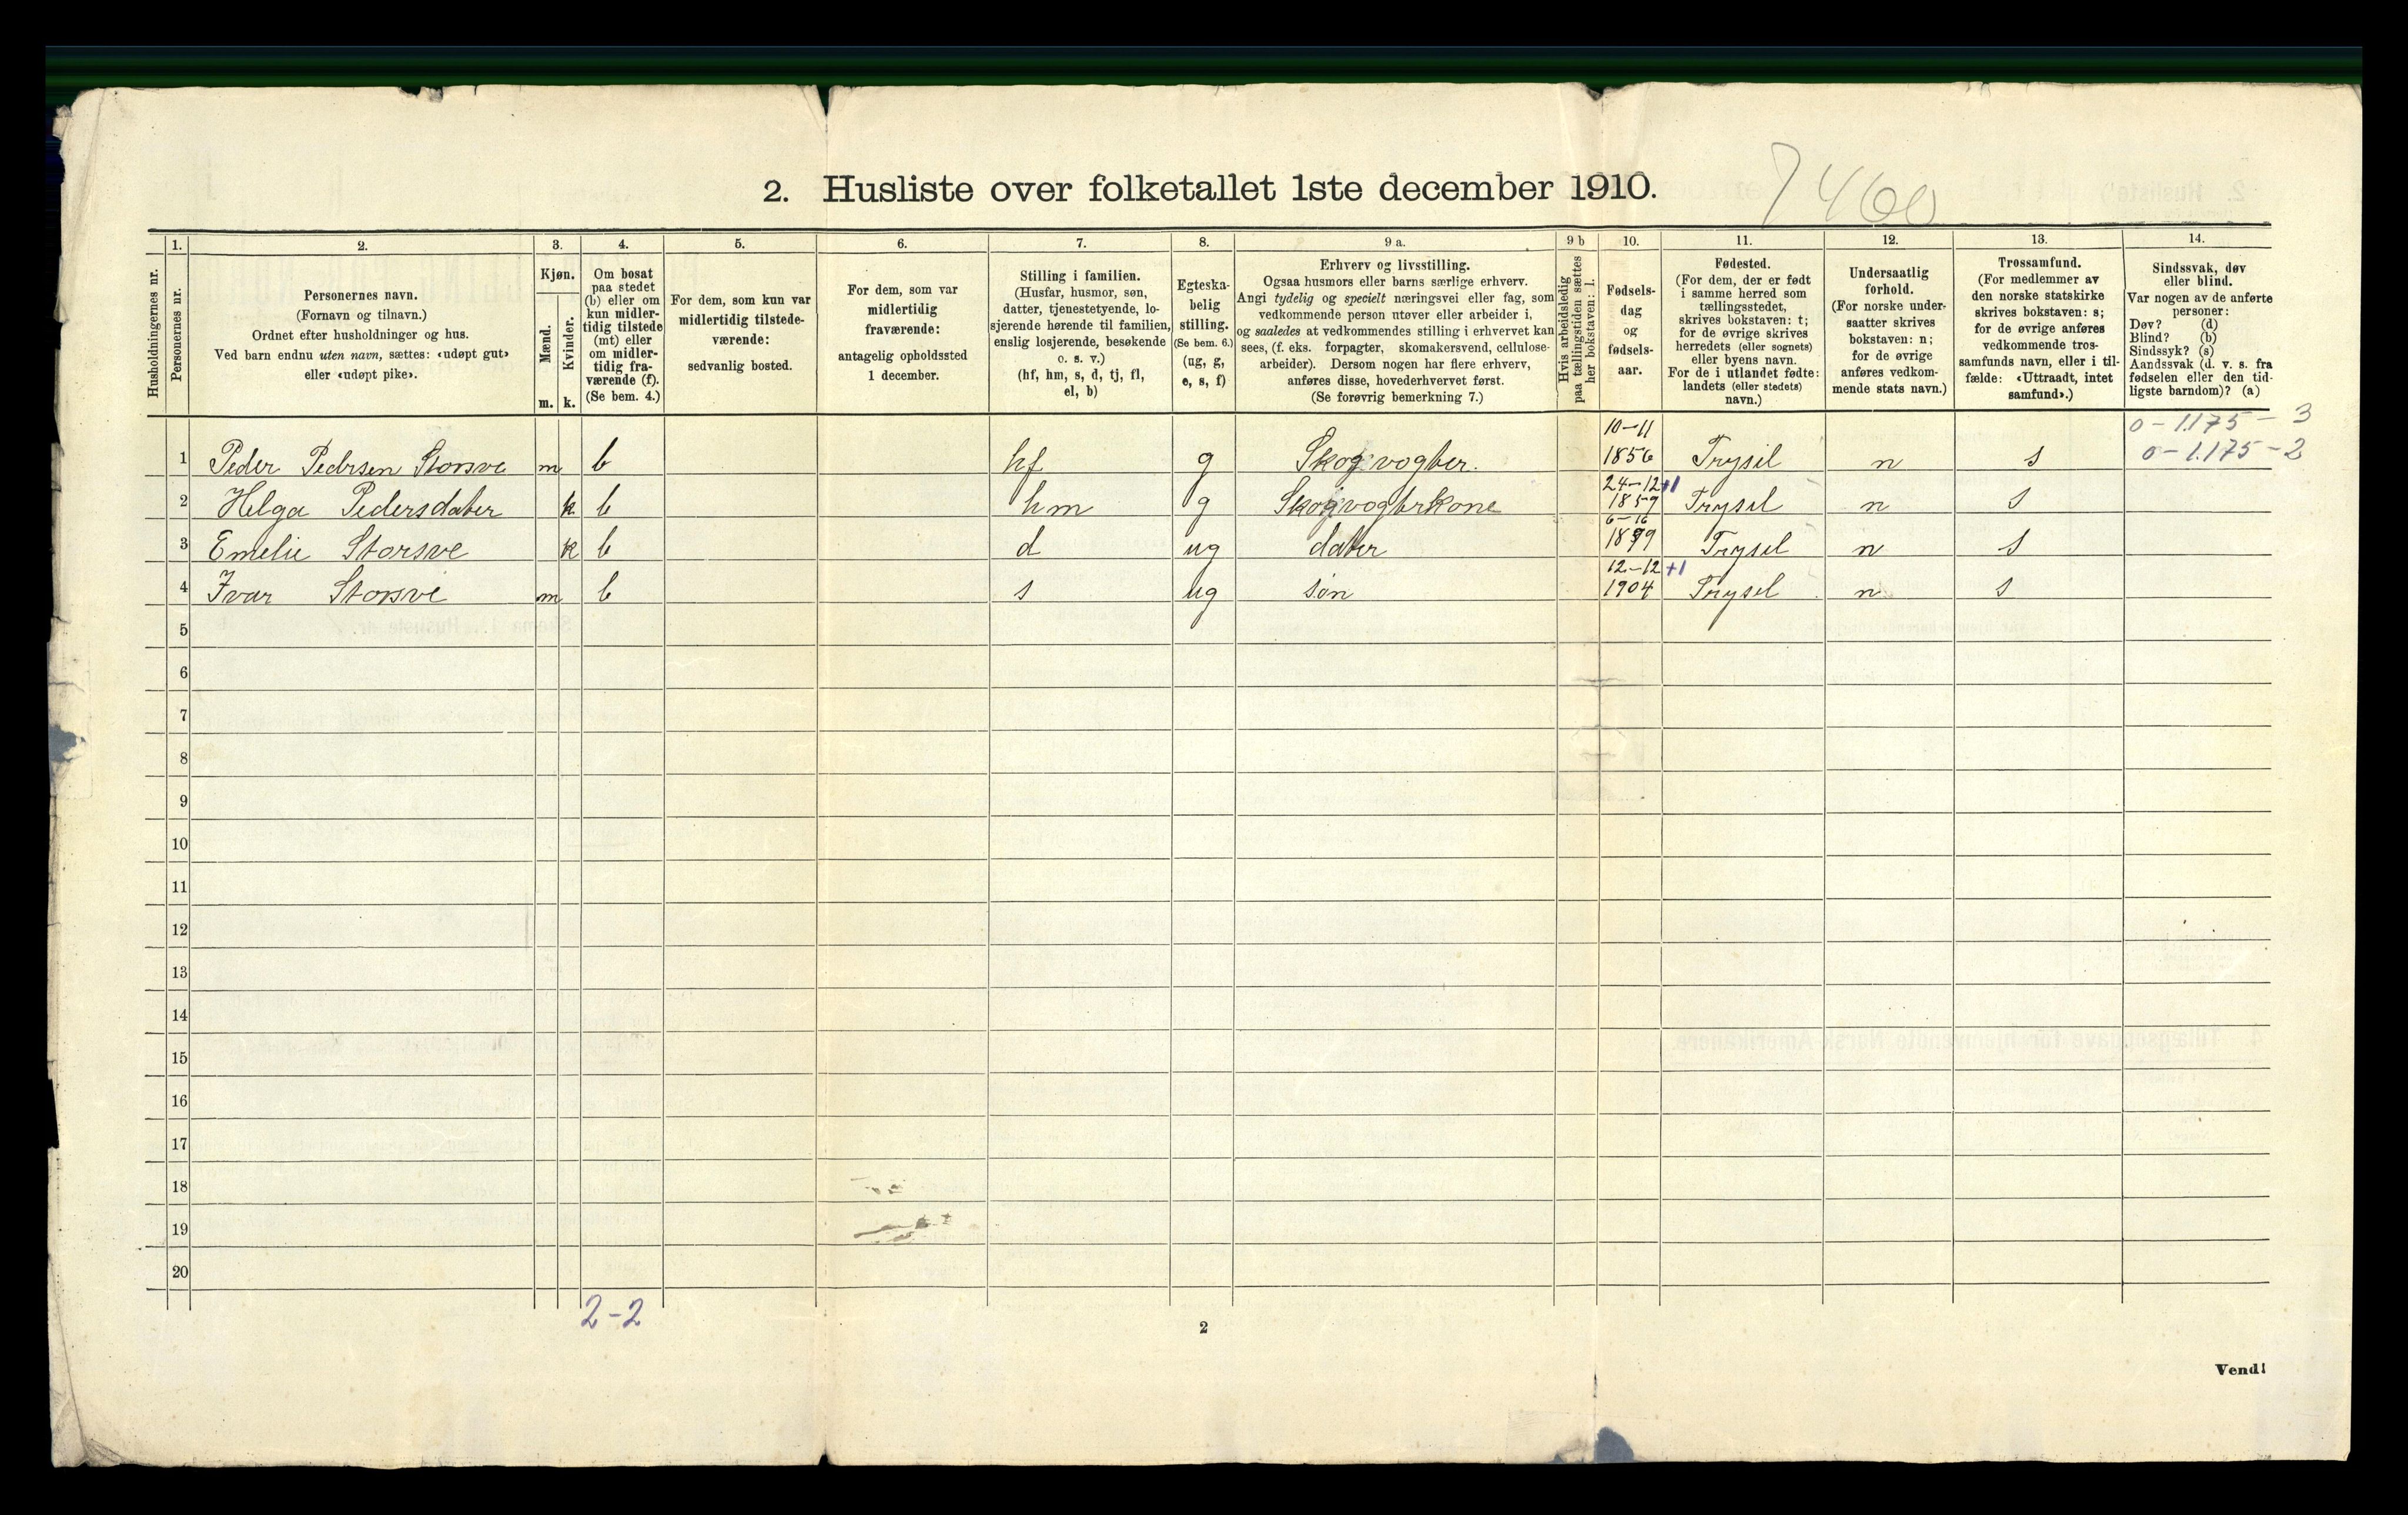 2. Husliste over folketallet 1ste december 1910.
7460
Husholdningernes nr.
1.
Personernes nr.
2.
Personernes navn.
(Fornavn og tilnavn.)
Ordnet efter husholdninger og hus.
Ved barn endnu uten navn, sættes: «udøpt gut»
eller «udøpt pike».
3.
Kjøn.
Mænd.
Kvinder.
m. k.
4.
Om bosat
paa stedet
(b) eller om
kun midler-
tidig tilstede
(mt) eller
om midler-
tidig fra-
værende (f).
(Se bem. 4.)
5.
For dem, som kun var
midlertidig tilstede-
værende:
sedvanlig bosted.
6.
For dem, som var
midlertidig
fraværende:
antagelig opholdssted
1 december.
7.
Stilling i familien.
(Husfar, husmor, søn,
datter, tjenestetyende, lo-
sjerende hørende til familien,
enslig losjerende, besøkende
o. s. v.)
(hf, hm, s, d, tj, fl,
el, b)
8.
Egteska-
belig
stilling.
(Se bem. 6.)
(ug, g,
e, s, f)
9 a.
Erhverv og livsstilling.
Ogsaa husmors eller barns særlige erhverv.
Angi tydelig og specielt næringsvei eller fag, som
vedkommende person utøver eller arbeider i,
og saaledes at vedkommendes stilling i erhvervet kan
sees, (f. eks. forpagter, skomakersvend, cellulose-
arbeider). Dersom nogen har flere erhverv,
anføres disse, hovederhvervet først.
(Se forøvrig bemerkning 7.)
9 b
Hvis arbeidsledig
paa tællingstiden sættes
her bokstaven: l.
10.
Fødsels-
dag
og
fødsels-
aar.
11.
Fødested.
(For dem, der er født
i samme herred som
tællingsstedet,
skrives bokstaven: t;
for de øvrige skrives
herredets (eller sognets)
eller byens navn.
For de i utlandet fødte:
landets (eller stedets)
navn.)
12.
Undersaatlig
forhold.
(For norske under-
saatter skrives
bokstaven: n;
for de øvrige
anføres vedkom-
mende stats navn.)
13.
Trossamfund.
(For medlemmer av
den norske statskirke
skrives bokstaven: s;
for de øvrige anføres
vedkommende tros-
samfunds navn, eller i til-
fælde: «Uttraadt, intet
samfund».)
14.
Sindssvak, døv
eller blind.
Var nogen av de anførte
personer:
Døv? (d)
Blind? (b)
Sindssyk? (s)
Aandssvak (d. v. s. fra
fødselen eller den tid-
ligste barndom)? (a)
0-1.175-3
0-1.175-2
1 Peder Pedersen Storsve m b hf g Skogvogter. 10-11 1856 Trysil n s
2 Helga Pedersdater k b hm g Skogvogterkone 24-12 +1 1859 Trysil n s
3 Emelie Storsve k b d ug dater 6-16 1899 Trysil n s
4 Ivar Storsve m b s ug søn 12-12 +1 1904 Trysil n s
5
6
7
8
9
10
11
12
13
14
15
16
17
18
19
20
2-2
2
Vend!